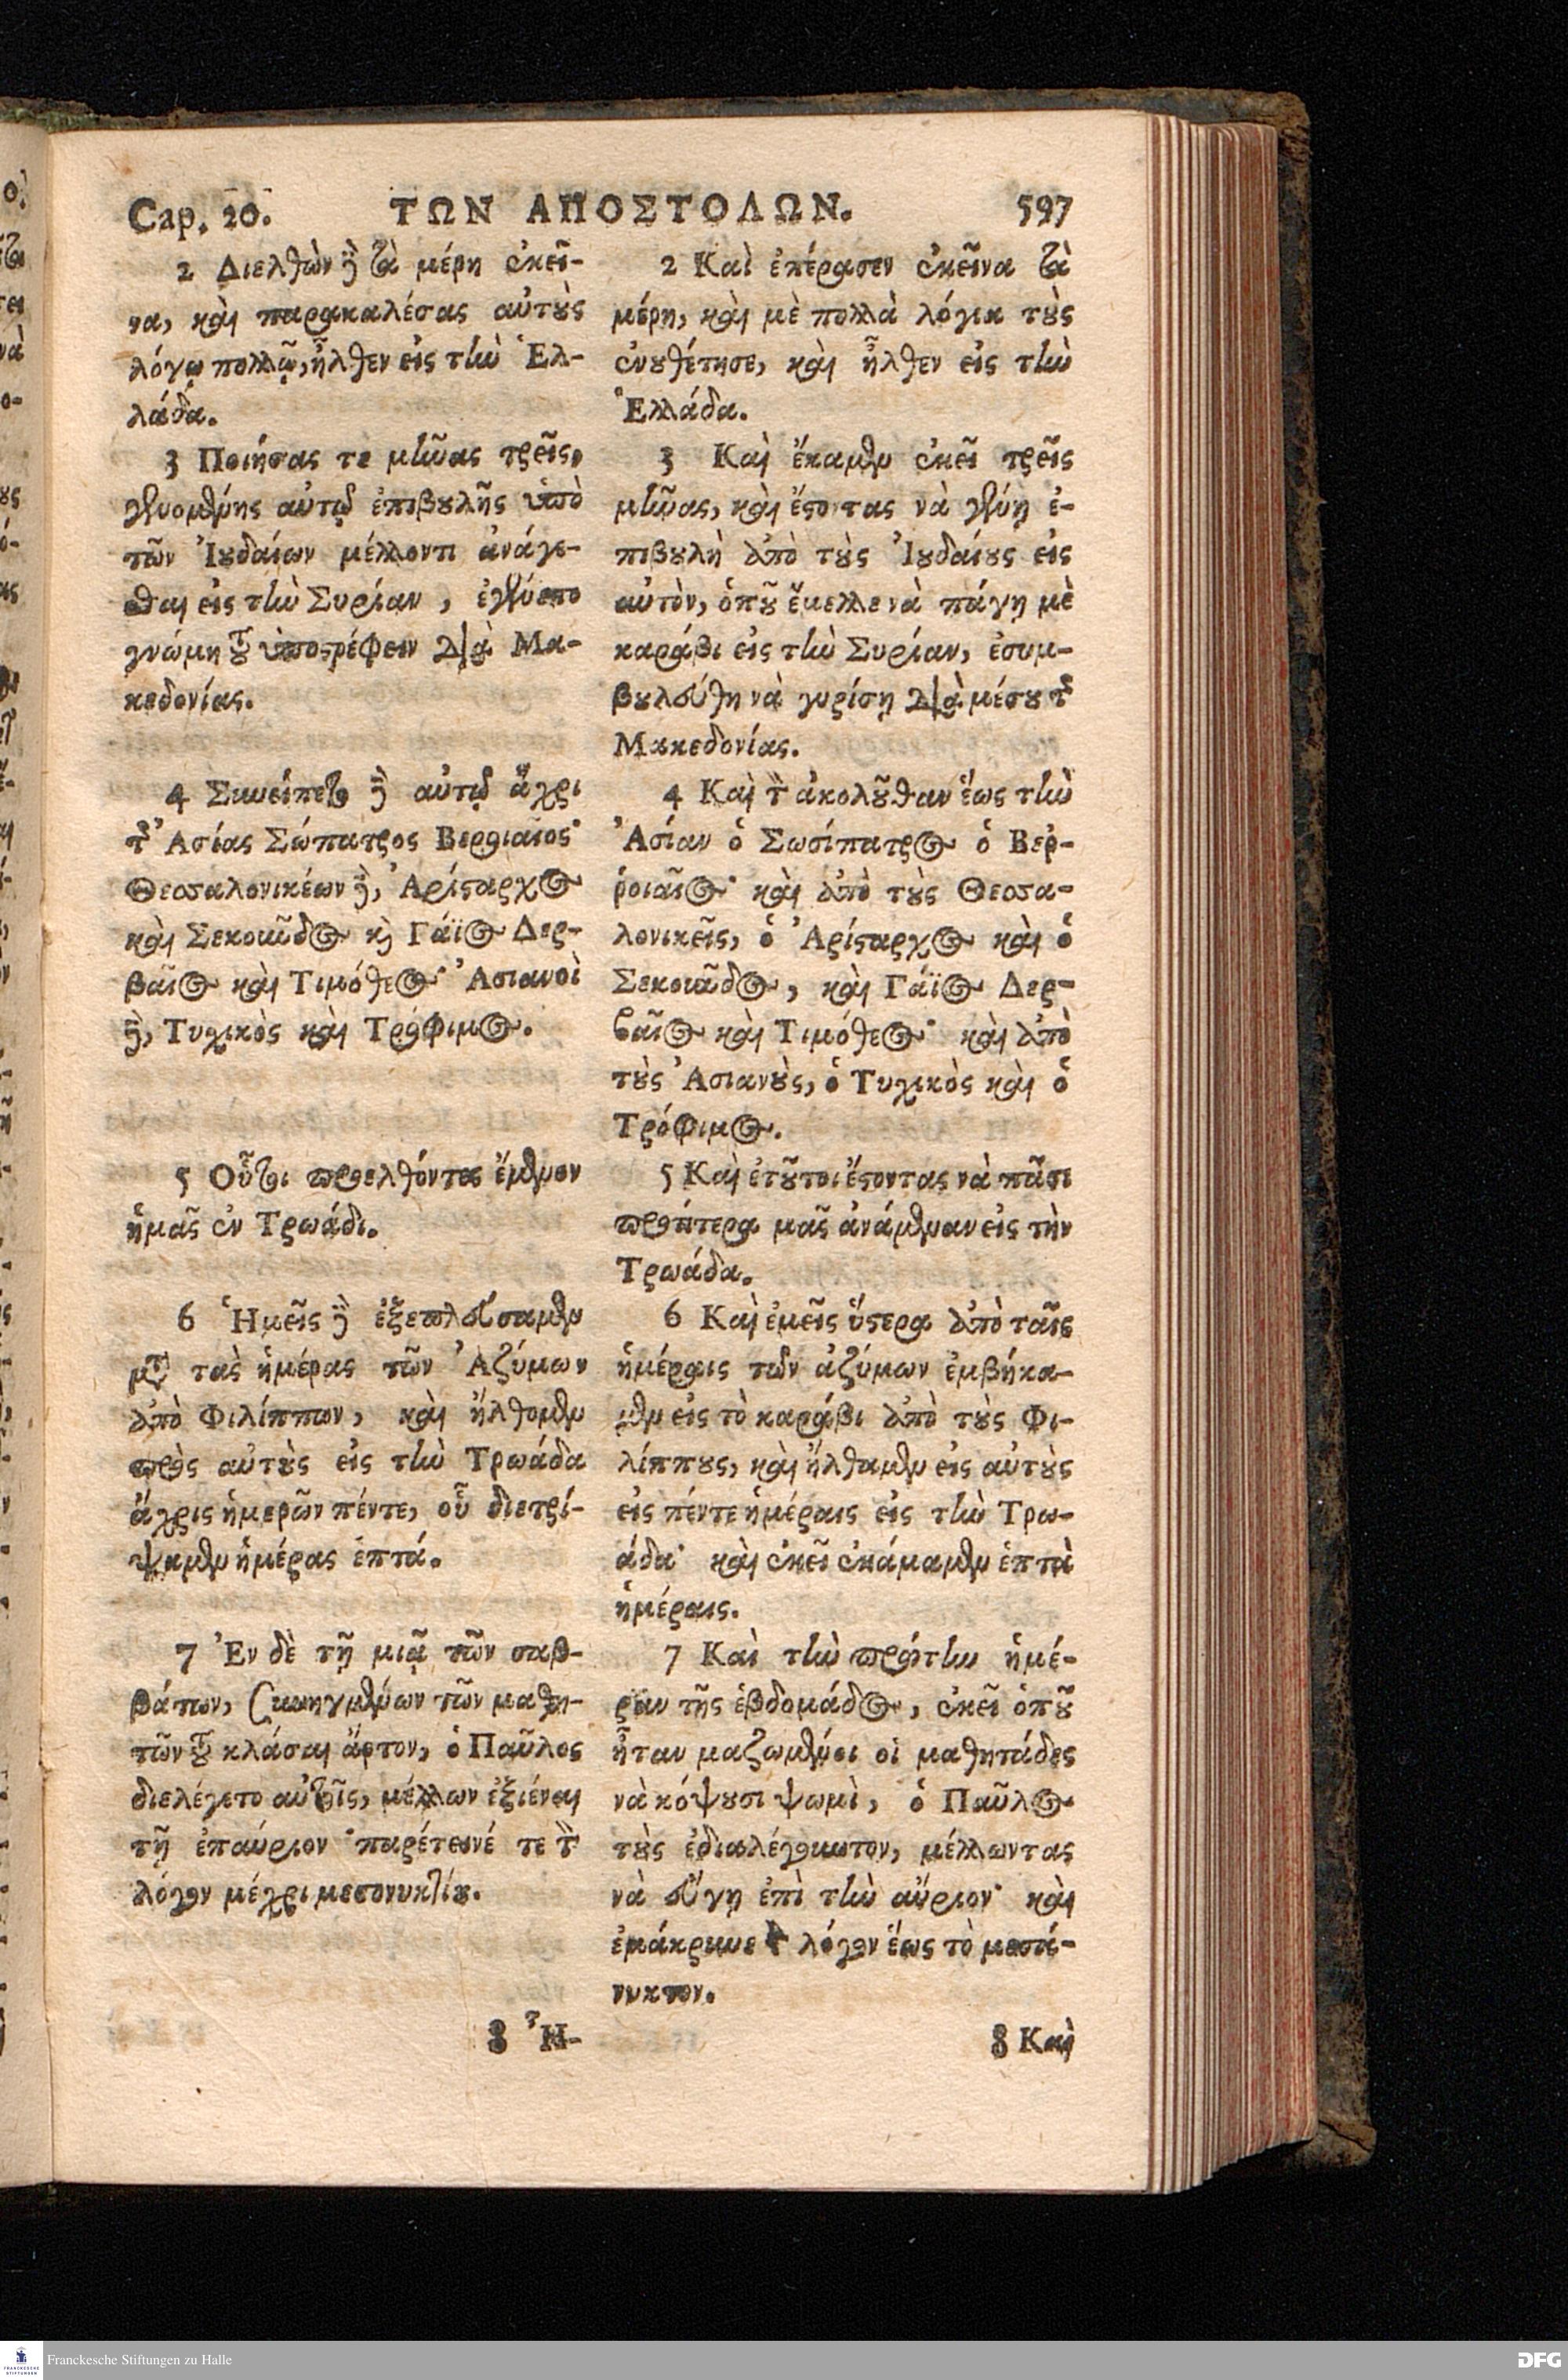 Cap. 20. ΤΩΝ ΑΠΟΣΤΟΛΩΝ. 597
2 Διελθὼν δὲ τὰ μέρη ἐκεῖ-
να, καὶ παρακαλέσας αὐτοὺς
λόγῳ πολλῷ, ἦλθεν εἰς τὴν Ἑλ-
λάδα.
3 Ποιήσας τε μῆνας τρεῖς,
γενομένης αὐτῷ ἐπιβουλῆς ὑπὸ
τῶν Ἰουδαίων μέλλοντι ἀνάγε-
σθαι εἰς τὴν Συρίαν, ἐγένετο
γνώμη τοῦ ὑποστρέφειν διὰ Μα-
κεδονίας.
4 Συνείπετο δὲ αὐτῷ ἄχρι
τῆς Ἀσίας Σώπατρος Βεροιαῖος·
Θεσσαλονικέων δὲ, Ἀρίσταρχος
καὶ Σεκοῦνδος καὶ Γάϊος Δερ-
βαῖος καὶ Τιμόθεος· Ἀσιανοὶ
δὲ, Τυχικὸς καὶ Τρόφιμος.
5 Οὗτοι προελθόντες ἔμενον
ἡμᾶς ἐν Τρωάδι.
6 Ἡμεῖς δὲ ἐξεπλεύσαμεν
μετὰ τὰς ἡμέρας τῶν Ἀζύμων
ἀπὸ Φιλίππων, καὶ ἤλθομεν
πρὸς αὐτοὺς εἰς τὴν Τρωάδα
ἄχρις ἡμερῶν πέντε, οὗ διετρί-
ψαμεν ἡμέρας ἑπτά.
7 Ἐν δὲ τῇ μιᾷ τῶν σαβ-
βάτων, συνηγμένων τῶν μαθη-
τῶν τοῦ κλάσαι ἄρτον, ὁ Παῦλος
διελέγετο αὐτοῖς, μέλλων ἐξιέναι
τῇ ἐπαύριον· παρέτεινέ τε τὸν
λόγον μέχρι μεσονυκτίου.
8 Ἦ-
2 Καὶ ἐπέρασεν ἐκεῖνα τὰ
μέρη, καὶ μὲ πολλὰ λόγια τοὺς
ἐνουθέτησε, καὶ ἦλθεν εἰς τὴν
Ἑλλάδα.
3 Καὶ ἔκαμεν ἐκεῖ τρεῖς
μῆνας, καὶ ἔστοντας νὰ γένῃ ἐ-
πιβουλὴ ἀπὸ τοὺς Ἰουδαίους εἰς
αὐτὸν, ὁποῦ ἔμελλε νὰ πάγῃ μὲ
καράβι εἰς τὴν Συρίαν, ἐσυμ-
βουλεύθη νὰ γυρίσῃ διὰ μέσου τῆς
Μακεδονίας.
4 Καὶ τὸν ἀκολοῦθαν ἕως τὴν
Ἀσίαν ὁ Σωσίπατρος ὁ Βερ-
ῥοιαῖος· καὶ ἀπὸ τοὺς Θεσσα-
λονικεῖς, ὁ Ἀρίσταρχος καὶ ὁ
Σεκοῦνδος, καὶ Γάϊος Δερ-
βαῖος καὶ Τιμόθεος· καὶ ἀπὸ
τοὺς Ἀσιανοὺς, ὁ Τυχικὸς καὶ ὁ
Τρόφιμος.
5 Καὶ ἐτοῦτοι ἔστοντας νὰ πᾶσι
πρωτίτερα μᾶς ἀνάμεναν εἰς τὴν
Τρωάδα.
6 Καὶ ἐμεῖς ὕστερα ἀπὸ ταῖς
ἡμέραις τῶν ἀζύμων ἐμβήκα-
μεν εἰς τὸ καράβι ἀπὸ τοὺς Φι-
λίππους, καὶ ἤλθαμεν εἰς αὐτοὺς
εἰς πέντε ἡμέραις εἰς τὴν Τρω-
άδα· καὶ ἐκεῖ ἐκάμαμεν ἑπτὰ
ἡμέραις.
7 Καὶ τὴν πρώτην ἡμέ-
ραν τῆς ἑβδομάδος, ἐκεῖ ὁποῦ
ἦταν μαζωμένοι οἱ μαθητάδες
νὰ κόψουσι ψωμὶ, ὁ Παῦλος
τοὺς ἐδιαλέγουνταν, μέλλωντας
νὰ εὔγῃ ἐπὶ τὴν αὔριον· καὶ
ἐμάκρυνε τὸν λόγον ἕως τὸ μεσά-
νυκτον.
8 Καὶ
Franckesche Stiftungen zu Halle
DFG